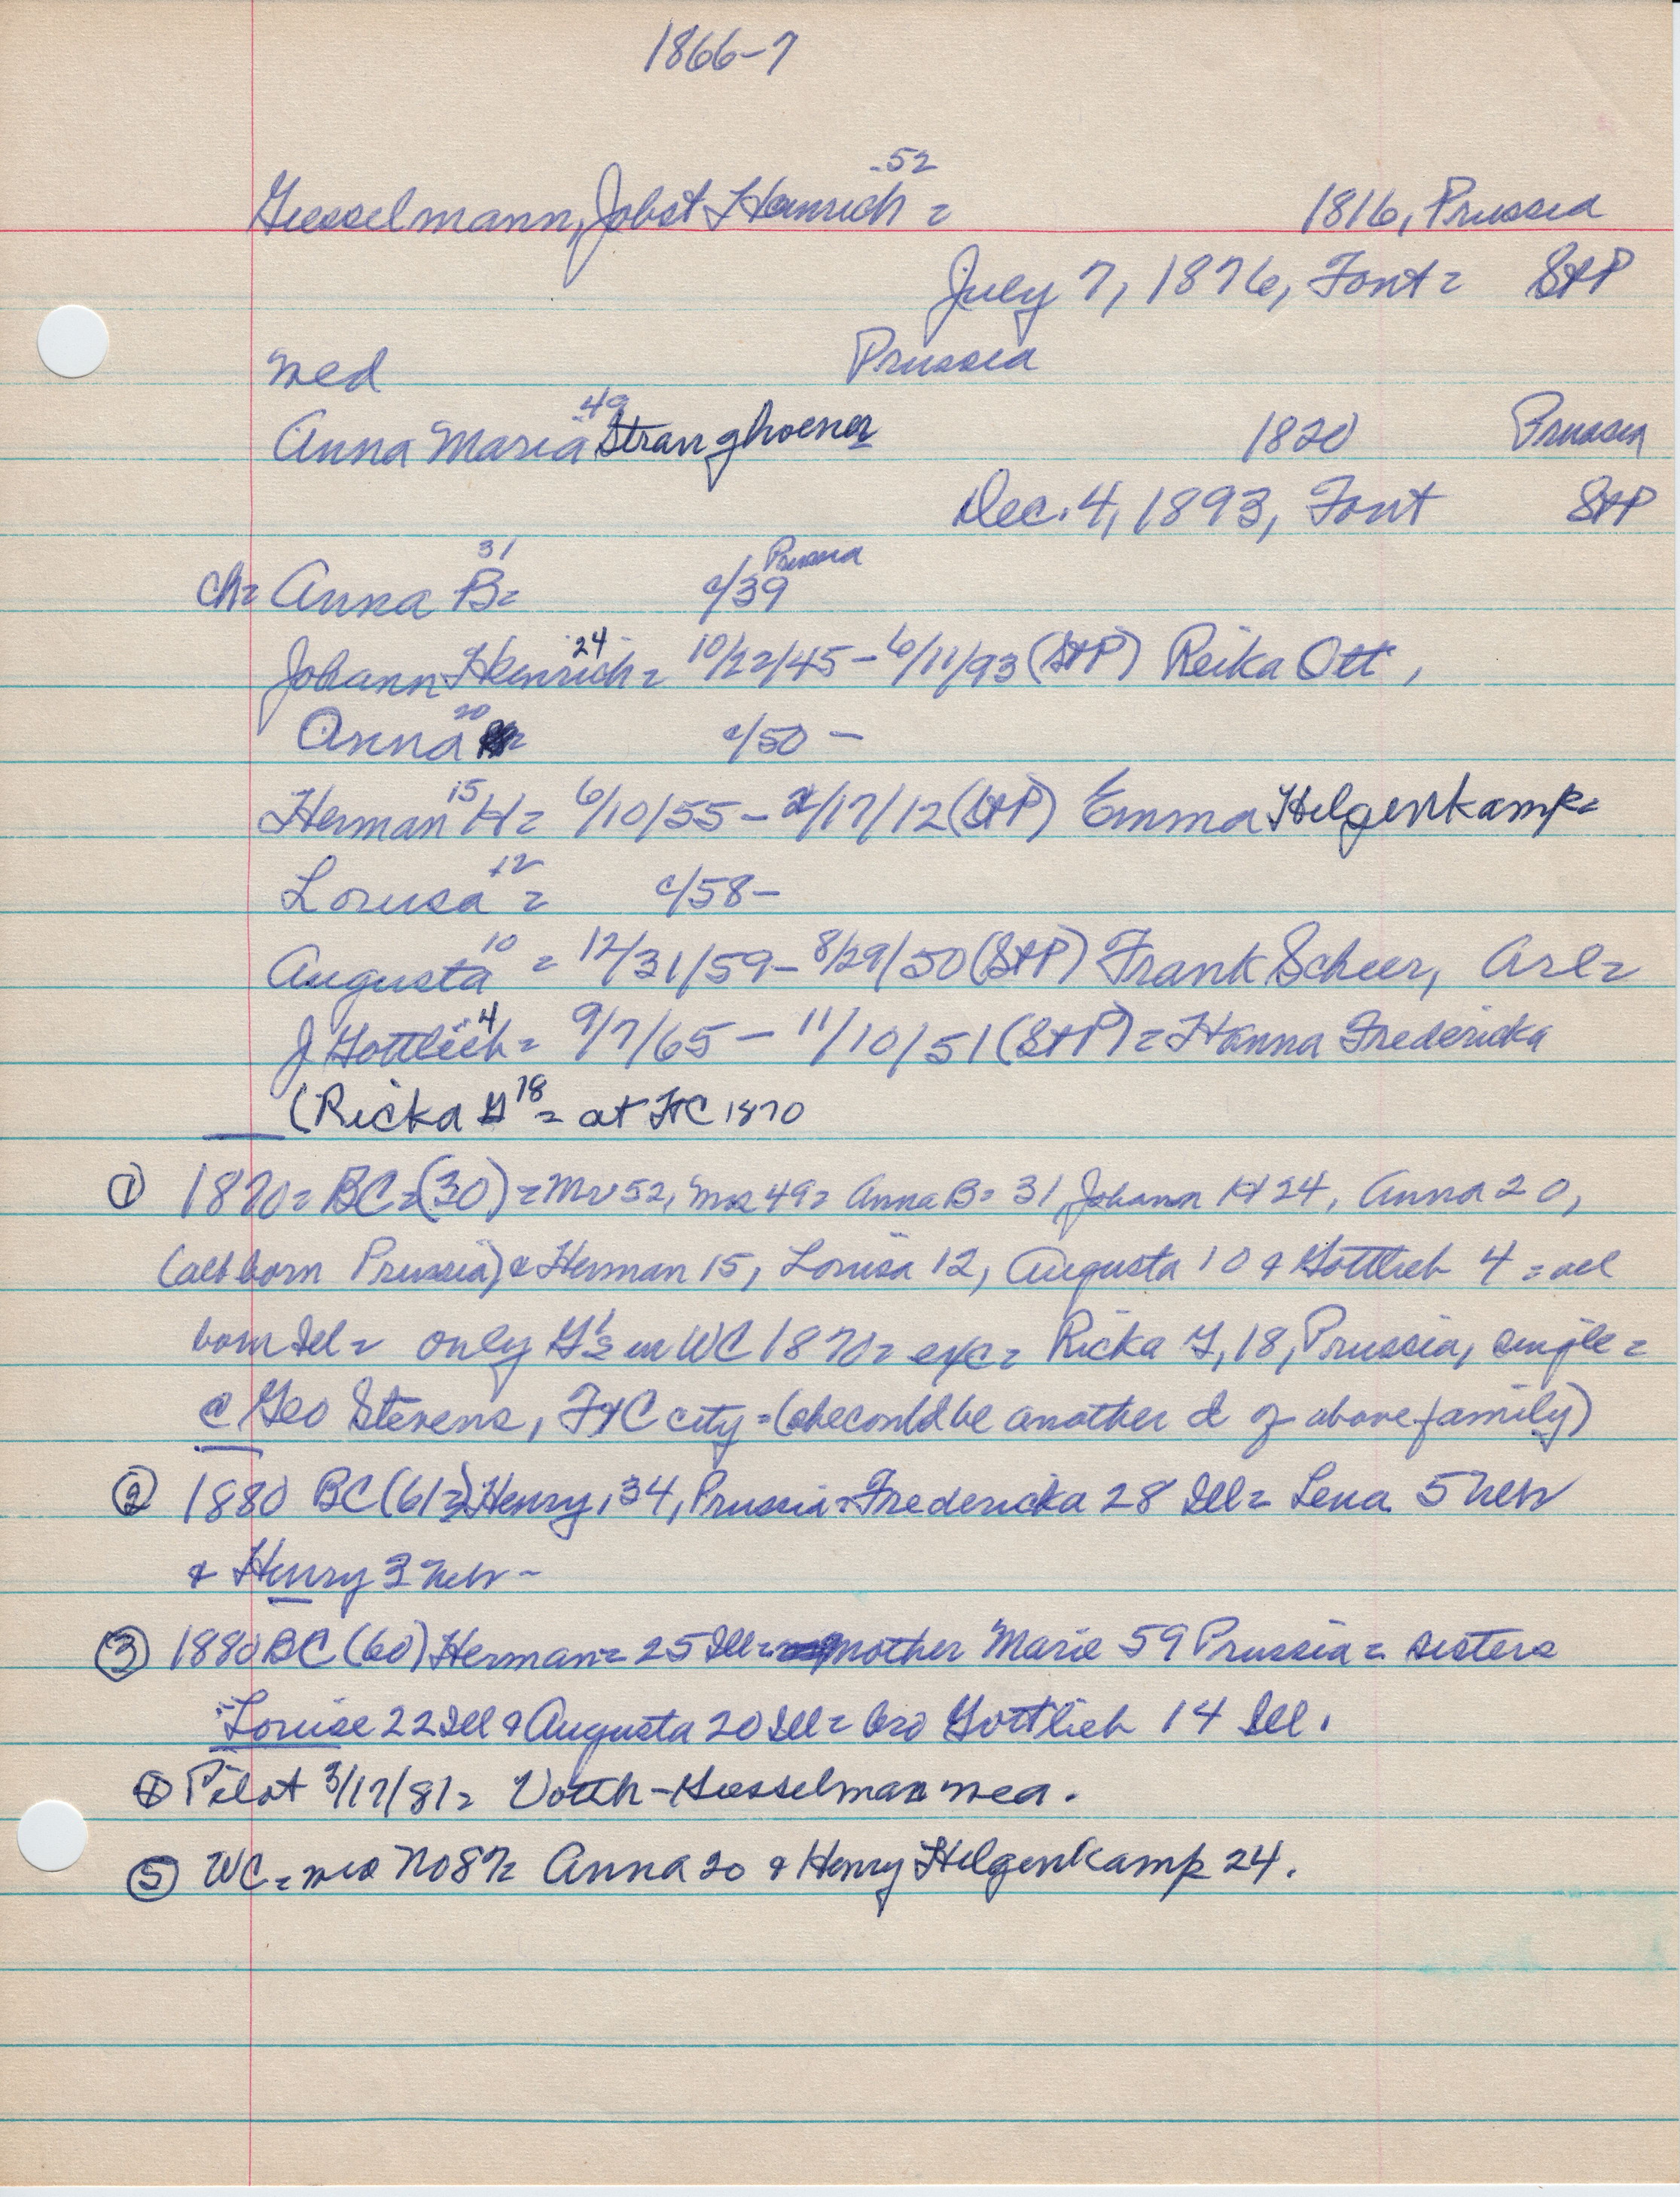 1866-7
52
Giesselmann, Jobst Heinrich = 1816, Prussia
July 7, 1876, Font = StP
med Prussia
49
Anna Maria Stranghoener 1820 Prussia
Dec. 4, 1893, Font StP
31 Prussia
ch = Anna B = c/39
24
Johann Heinrich = 10/22/45 - 6/11/93 (StP) Reika Ott,
20
Anna c/50 -
15
Herman H = 6/10/55 - 2/17/12 (StP) Emma Helgenkamp =
12
Louisa = c/58 -
10
Augusta = 12/31/59 - 8/29/50 (StP) Frank Scheer, Arl =
4
J Gottlieb = 9/7/65 - 11/10/51 (StP) = Hanna Fredericka
(Ricka G 18 = at FtC 1870
① 1870 = BC = (30) = Mr 52, Mrs 49 = Anna B = 31, Johann H 24, Anna 20,
(all born Prussia) & Herman 15, Louisa 12, Augusta 10 & Gottlieb 4 = all
born Ill = only G's in WC 1870 = exc = Ricka G, 18, Prussia, single =
@ Geo Stevens, FtC city = (she could be another d of above family)
② 1880 BC (61 =) Henry, 34, Prussia = Fredericka 28 Ill = Lena 5 Neb
& Henry 3 Neb -
③ 1880 BC (60) Herman = 25 Ill = mother Marie 59 Prussia = sisters
Louise 22 Ill & Augusta 20 Ill = bro Gottlieb 14 Ill.
④ Pilot 3/17/81 = Voth - Giesselman med.
⑤ WC = med No 87 = Anna 20 & Henry Helgenkamp 24.